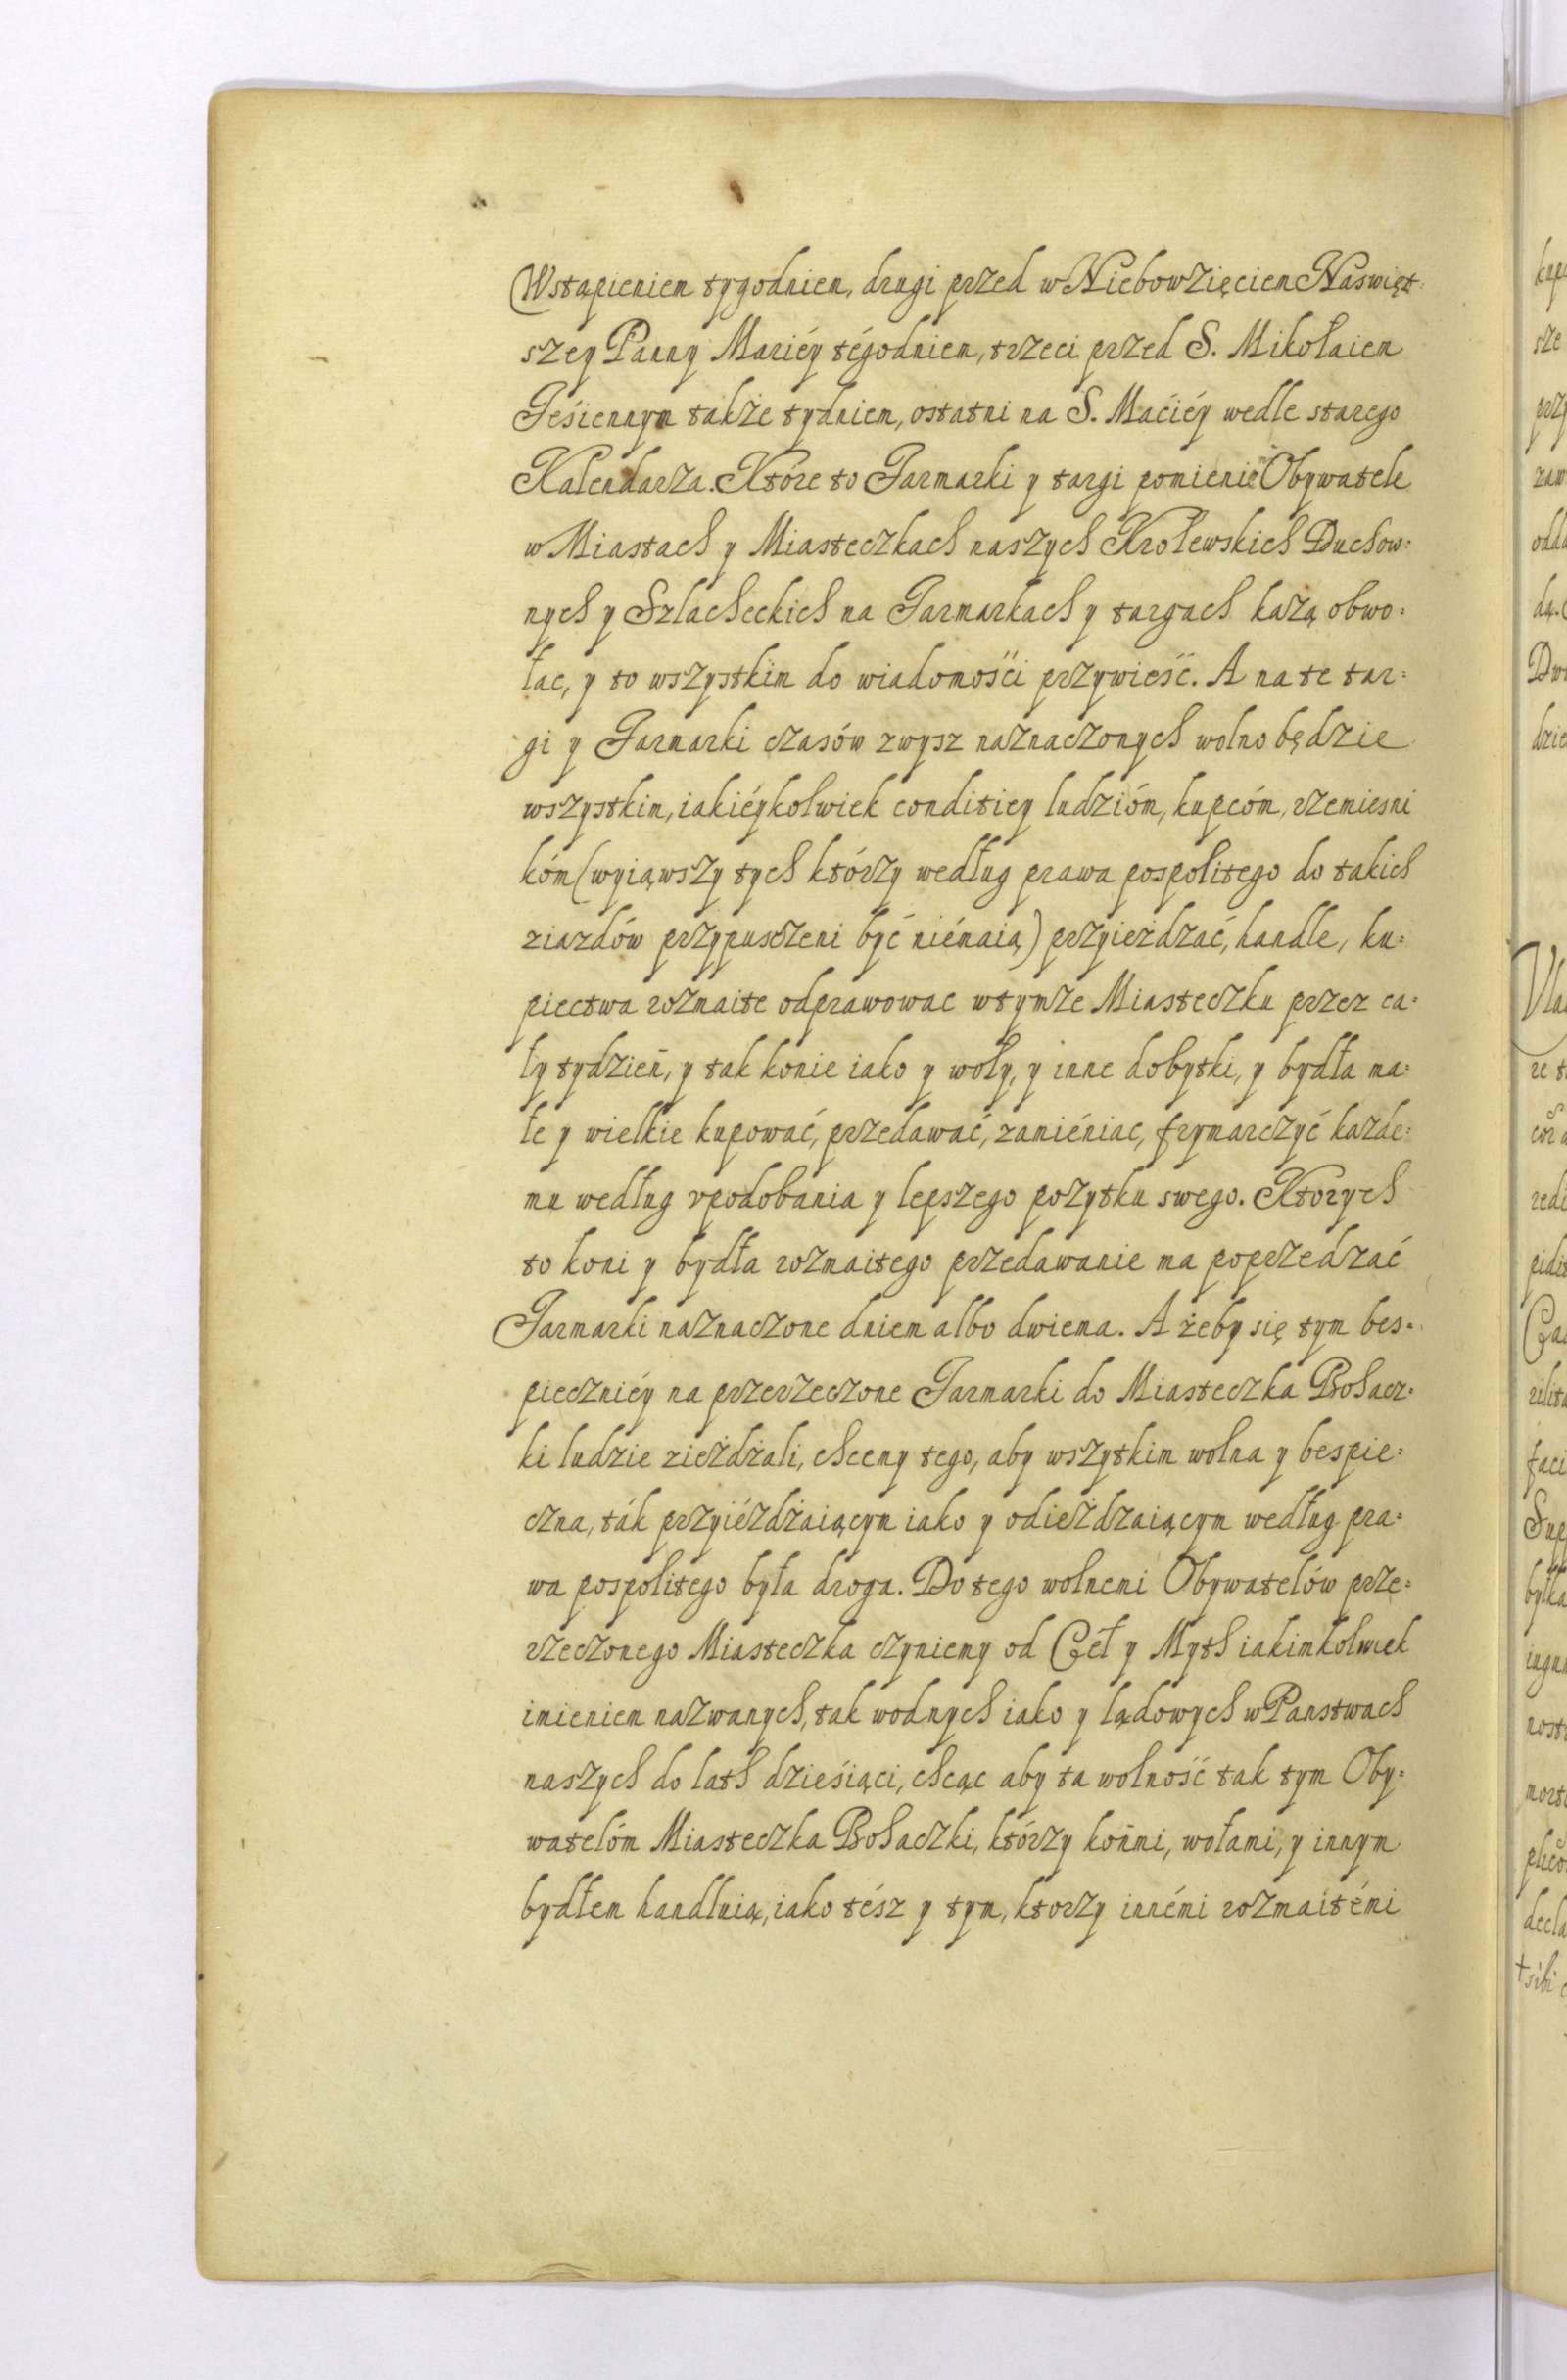 Wstąpieniem tygodniem, drugi przed w Niebowzięciem Naswięt:
szey Panny Mariéy tégodniem, trzeci przed S. Mikołaiem
Jeśiennym także tydniem, ostatni na S. Maćiéy wedle starego
Kalendarza. Które to Jarmarki y targi pomienie Obywatele
w Miastach y Miasteczkach naszych Krolewskich Duchow:
nych y Szlacheckich na Jarmarkach y targach każą obwo:
łac, y to wszystkim do wiadomośći przywieść. A na te tar:
gi y Jarmarki czasów zwysz naznaczonych wolno będzie
wszystkim, iakiéykolwiek conditiey ludzióm, kupcóm, rzemiesni
kóm (wyiąwszy tych którzy według prawa pospolitego do takich
ziazdów przypuszczeni być niémaią) przyieżdzać, handle, ku:
piectwa rozmaite odprawowac wtymże Miasteczku przez ca:
ły tydzień, y tak konie iako y woły, y inne dobytki, y bydła ma:
łe y wielkie kupować, przedawać, zamiéniac, frymarczyć kazde:
mu według vpodobania y lepszego pozytku swego. Ktorych
to koni y bydła rozmaitego przedawanie ma poprzedzać
Jarmarki naznaczone dniem albo dwiema. A żeby się tym bes:
pieczniéy na przerzeczone Jarmarki do Miasteczka Bohacz:
ki ludzie zieżdżali, chcemy tego, aby wszytkim wolna y bespie:
czna, ták przyiéżdżaiącym iako y odieżdzaiącym według pra:
wa pospolitego była droga. Do tego wolnemi Obywatelów prze:
rzeczonego Miasteczka czyniemy od Ceł y Myth iakimkolwiek
imieniem nazwanych, tak wodnych iako y lądowych w Panstwach
naszych do lath dzieśiąci, chcąc aby ta wolność tak tym Oby:
watelóm Miasteczka Bohaczki, którzy końmi, wołami, y innym
bydłem handluią, iako tész y tym, ktorzy innémi rozmaitémi